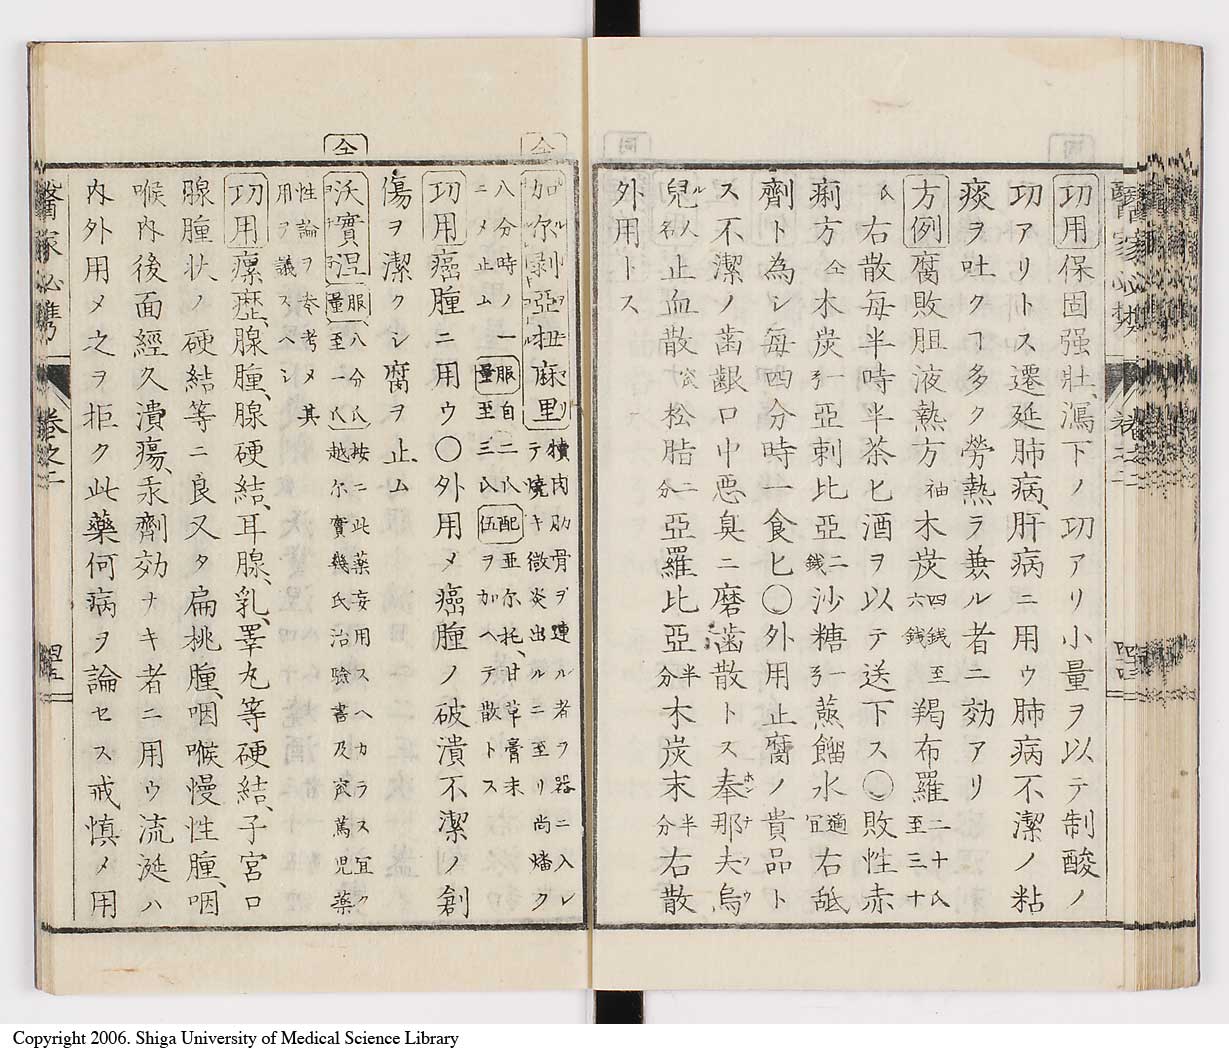 功用保固强壯、瀉下ノ功アリ小量ヲ以テ制酸ノ
功アリトス遷延肺病、肝病ニ用ウ肺病不潔ノ粘
痰ヲ吐クヿ多ク勞熱ヲ兼ル者ニ効アリ
方例腐敗胆液熱方 木炭四錢至六錢羯布羅二十氏至三十
氏右散毎半時半茶匕酒ヲ以テ送下ス○敗性赤
痢方仝木炭亞剌比亞二錢沙糖蒸餾水適宜右舐
劑ト為シ毎四分時一食匕○外用止腐ノ貴品ト
ス不潔ノ齒齦口中惡臭ニ磨齒散トス奉那夫烏
兒人名止血散 松脂二分亞羅比亞半分木炭末半分右散
外用トス
仝
加尔剥亞扭麻里 犢肉肋骨ヲ連ル者ヲ器ニ入レ
テ燒キ微炎出ルニ至リ尚燔ク
八分時ノ一服自二氏配亜尔托、甘草膏末
ニメ止ム量至三氏伍ヲ加ヘテ散トス
功用癌腫ニ用ウ○外用メ癌腫ノ破潰不潔ノ創
傷ヲ潔クシ腐ヲ止ム
仝
沃實涅服八分氏按ニ此薬妄用スヘカラス宜ク
量至一氏越尔實幾氏治驗書及窊篤児薬
性論ヲ参考メ其
用ヲ議スヘシ
功用瘰癧、腺腫、腺硬結、耳腺、乳、睪丸等硬結、子宮口
腺腫状ノ硬結等ニ良又タ扁桃腫、咽喉慢性腫、咽
喉内後面經久潰瘍、汞劑効ナキ者ニ用ウ流涎ハ
内外用メ之ヲ拒ク此藥何病ヲ論セス戒慎メ用
醫家必携
卷之二